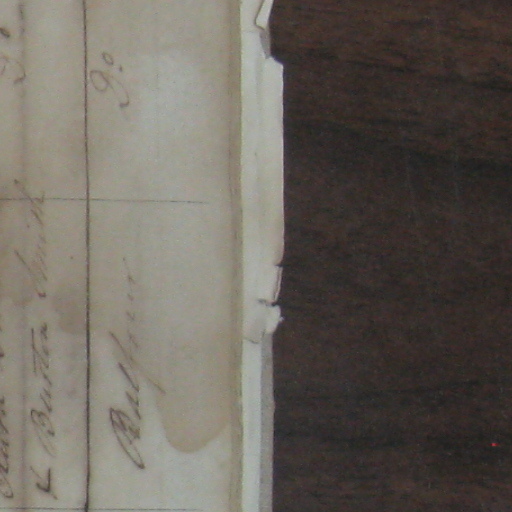 Do
& Burton Smith
Balfour Do